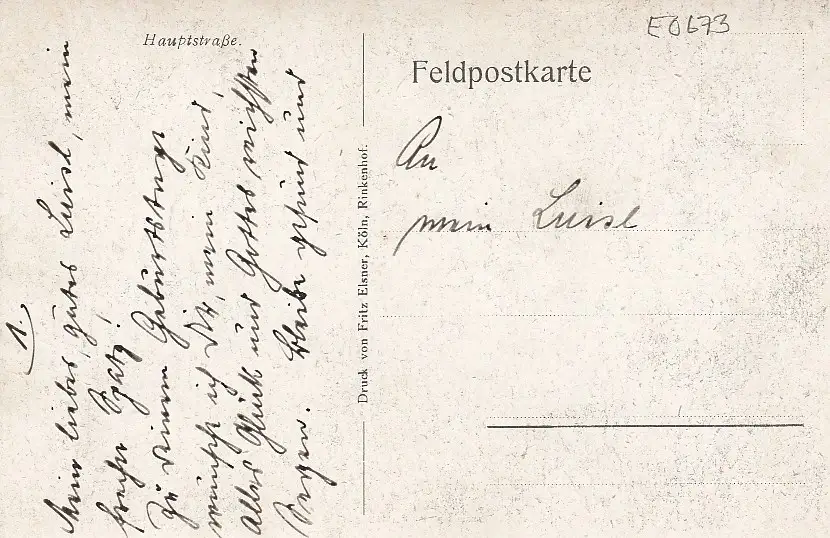 Hauptstraße.
1.
Mein liebes, gutes Luisl, mein
frecher Spatz!
Zu deinem Geburtstage
wünsche ich Dir, mein Kind,
alles Glück und Gottes reichsten
Segen. Bleibe gesund und
Druck von Fritz Elsner, Köln, Rinkenhof.
E0673
Feldpostkarte
An
mein Luisl